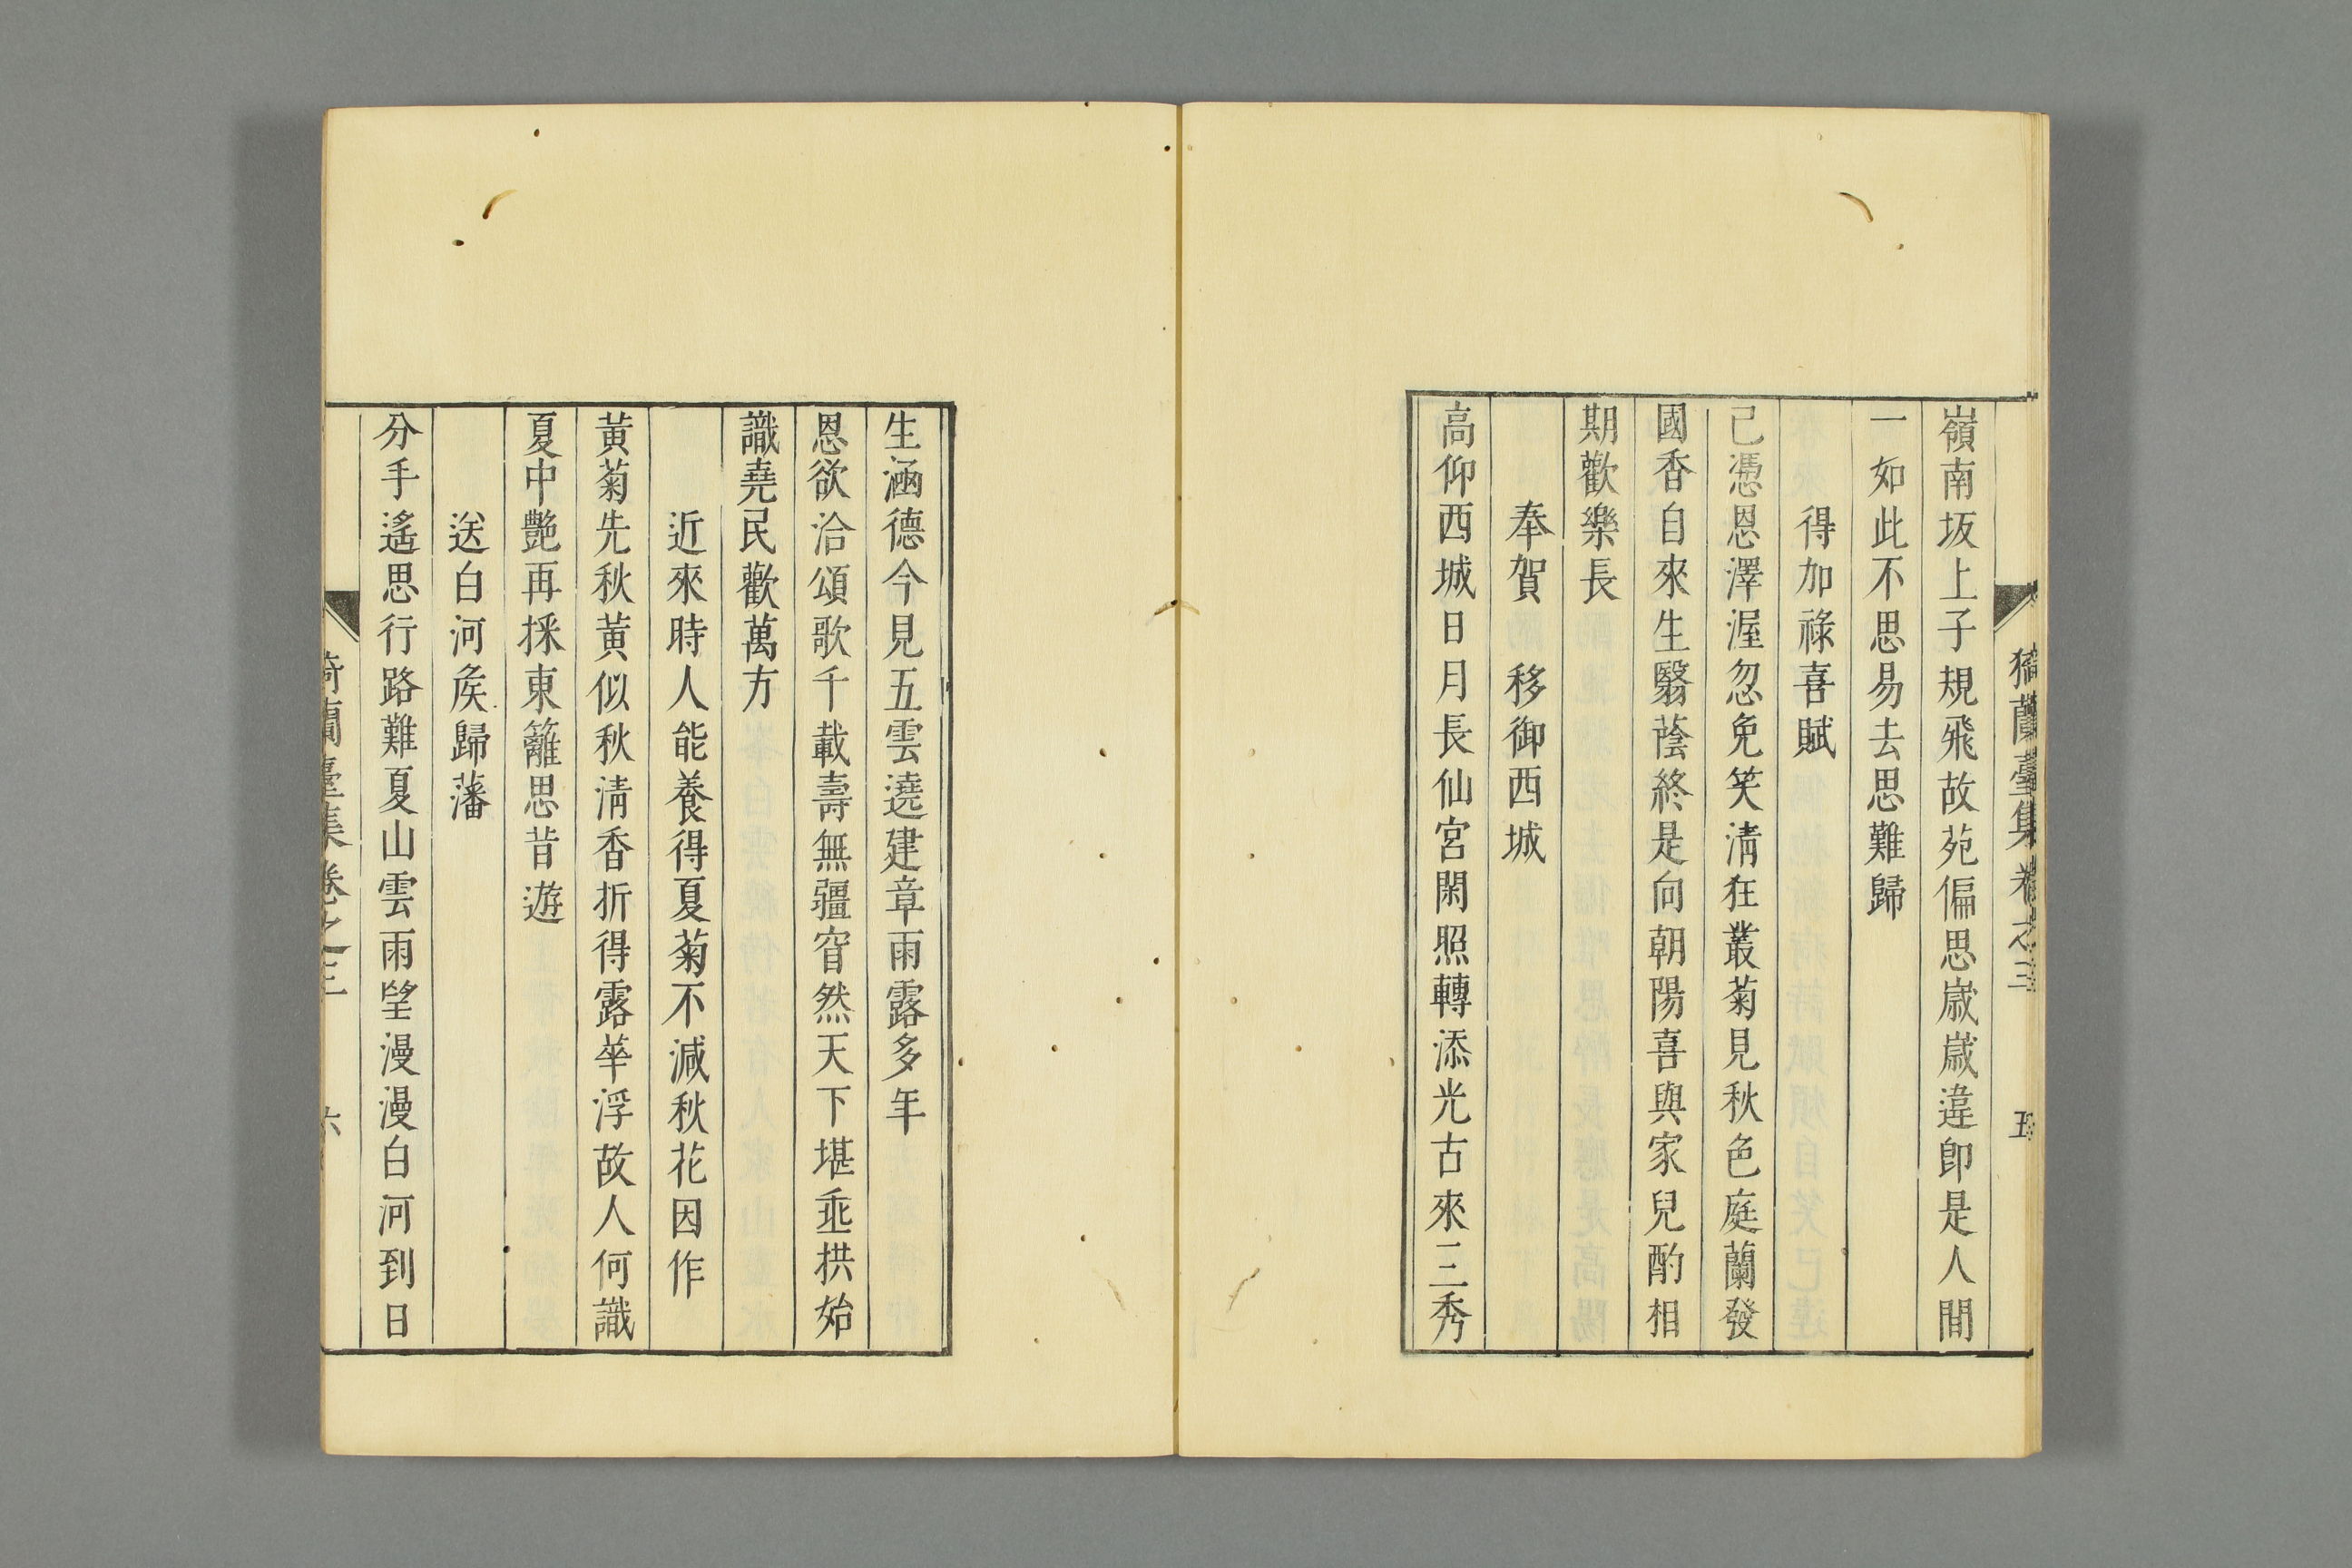 猗蘭臺集卷之三 五
嶺南坂上子規飛故苑偏思歲歲違卽是人間
一如此不思易去思難歸
得加祿喜賦
已憑恩澤渥忽免笑淸狂叢菊見秋色庭蘭發
國香自來生翳蔭終是向朝陽喜與家兒酌相
期歡樂長
奉賀 移御西城
高仰西城日月長仙宮閑照轉添光古來三秀
生涵德今見五雲遶建章雨露多年
恩欲洽頌歌千載壽無疆窅然天下堪垂拱始
識堯民歡萬方
近來時人能養得夏菊不減秋花因作
黃菊先秋黃似秋淸香折得露華浮故人何識
夏中艷再採東籬思昔遊
送白河矦歸藩
分手遙思行路難夏山雲雨望漫漫白河到日
猗蘭臺集卷之三 六